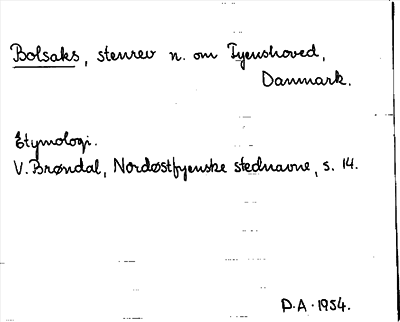 Bolsaks, stenrev n. om Fyenshoved,
Danmark.
Etymologi.
V. Brøndal, Nordøstfyenske stednavne, s. 14.
D.A. 1954.